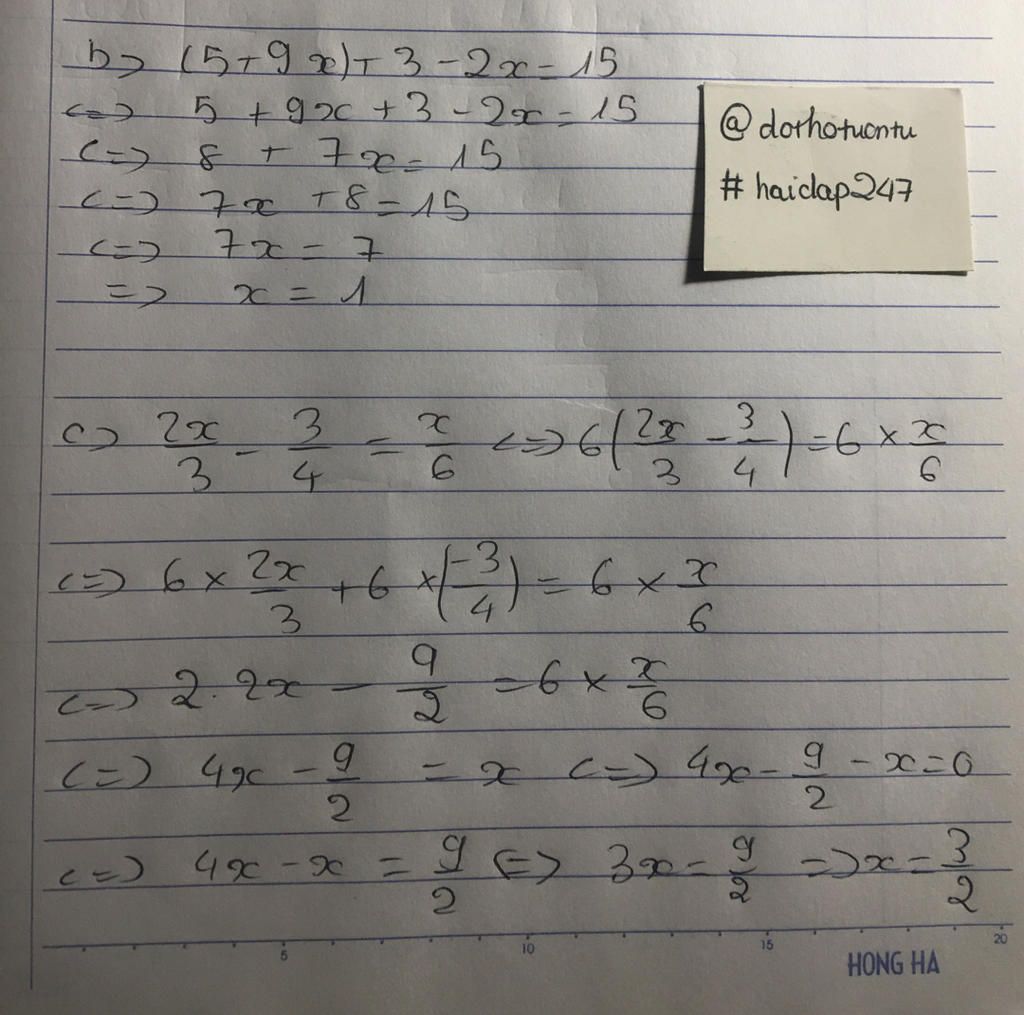 b> (5+9x)+3-2x=15
<=> 5+9x+3-2x=15
<=> 8+7x=15
<=> 7x+8=15
<=> 7x=7
=> x=1
@dorhotuontu
#haiclap247
c> 2x/3 - 3/4 = x/6 <=> 6(2x/3 - 3/4) = 6 × x/6
<=> 6 × 2x/3 + 6 × (-3/4) = 6 × x/6
<=> 2.2x - 9/2 = 6 × x/6
<=> 4x - 9/2 = x <=> 4x - 9/2 - x = 0
<=> 4x - x = 9/2 <=> 3x = 9/2 => x = 3/2
5 10 15 20
HONG HA